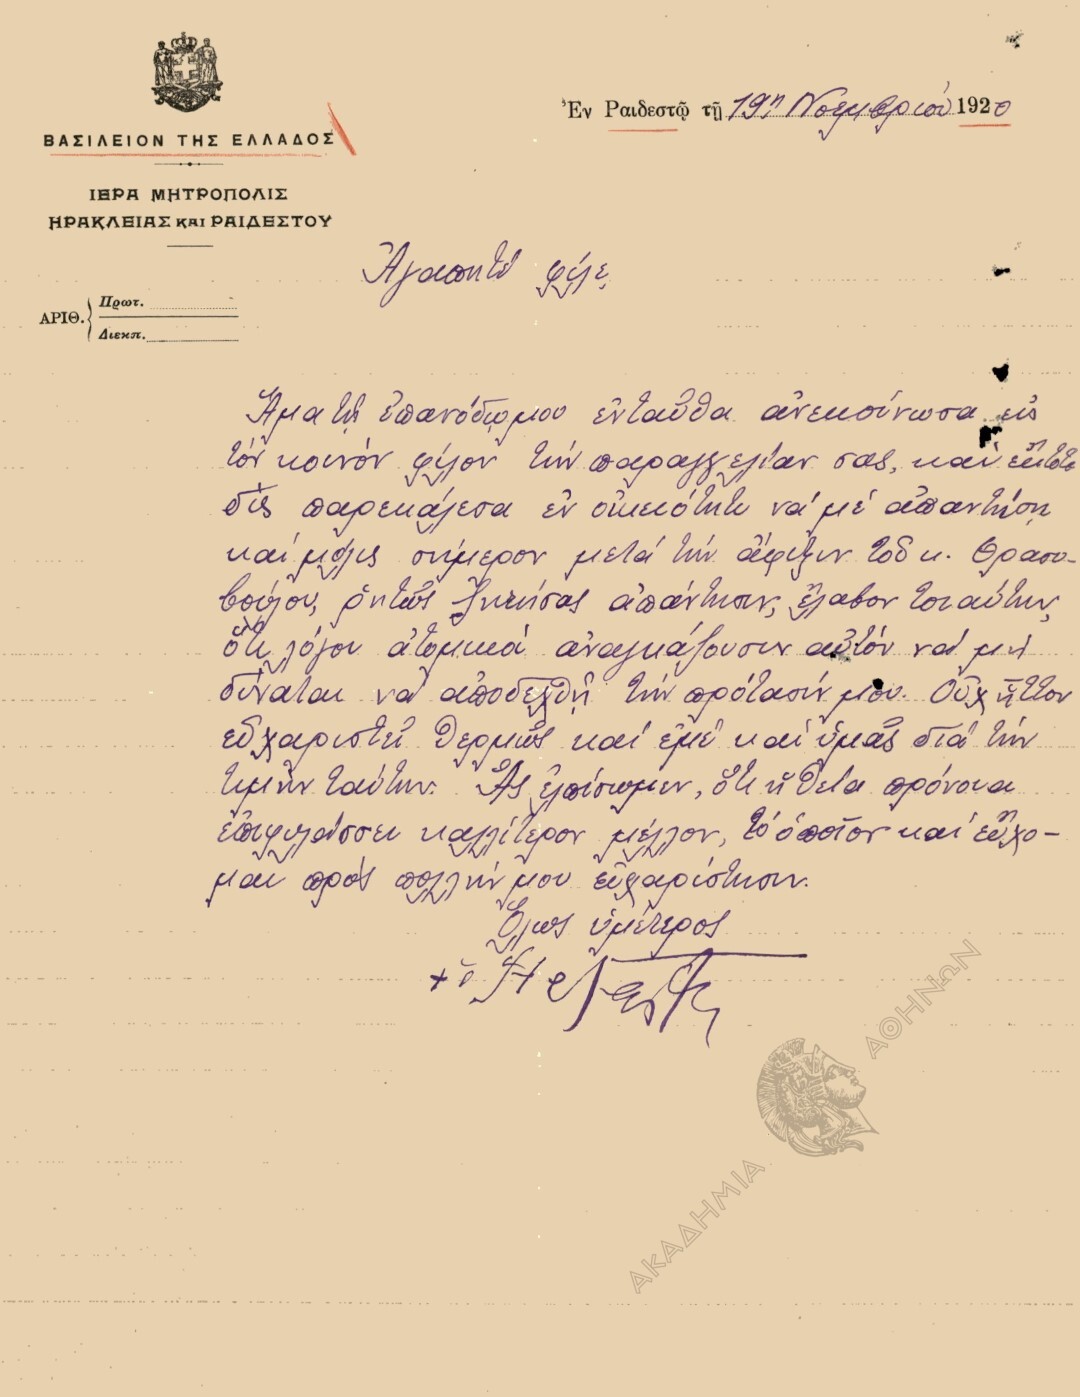 ΒΑΣΙΛΕΙΟΝ ΤΗΣ ΕΛΛΑΔΟΣ
ΙΕΡΑ ΜΗΤΡΟΠΟΛΙΣ
ΗΡΑΚΛΕΙΑΣ ΚΑΙ ΡΑΙΔΕΣΤΟΥ
ΑΡΙΘ. Πρωτ.
Διεκπ.
Ἐν Ραιδεστῷ τῇ 19ῃ Νοεμβρίου 1920
Ἀγαπητέ φίλε,
Ἅμα τῇ ἐπανόδῳ μου ἐνταῦθα ἀνεκοίνωσα εἰς
τόν κοινόν φίλον τήν παραγγελίαν σας, καί ἔκτοτε
δίς παρεκάλεσα ἐν οἰκειότητι νά μέ ἀπαντήσῃ
καί μόλις σήμερον μετά τήν ἄφιξιν τοῦ κ. Θρασυ-
βούλου, ῥητῶς ζητήσας ἀπάντησιν, ἔλαβον τοιαύτην,
ὅτι λόγοι ἀτομικοί ἀναγκάζουσιν αὐτόν νά μή
δύναται νά ἀποδεχθῇ τήν πρότασίν μου. Οὐχ ἧττον
εὐχαριστεῖ θερμῶς καί ἐμέ καί ὑμᾶς διά τήν
τιμήν ταύτην. Ἄς ἐλπίσωμεν, ὅτι ἡ θεία πρόνοια
ἐπιφυλάσσει καλλίτερον μέλλον, τό ὁποῖον καί εὔχο-
μαι πρός πολλήν μου εὐχαρίστησιν.
Ὅλως ὑμέτερος
ΑΚΑΔΗΜΙΑ ΑΘΗΝΩΝ